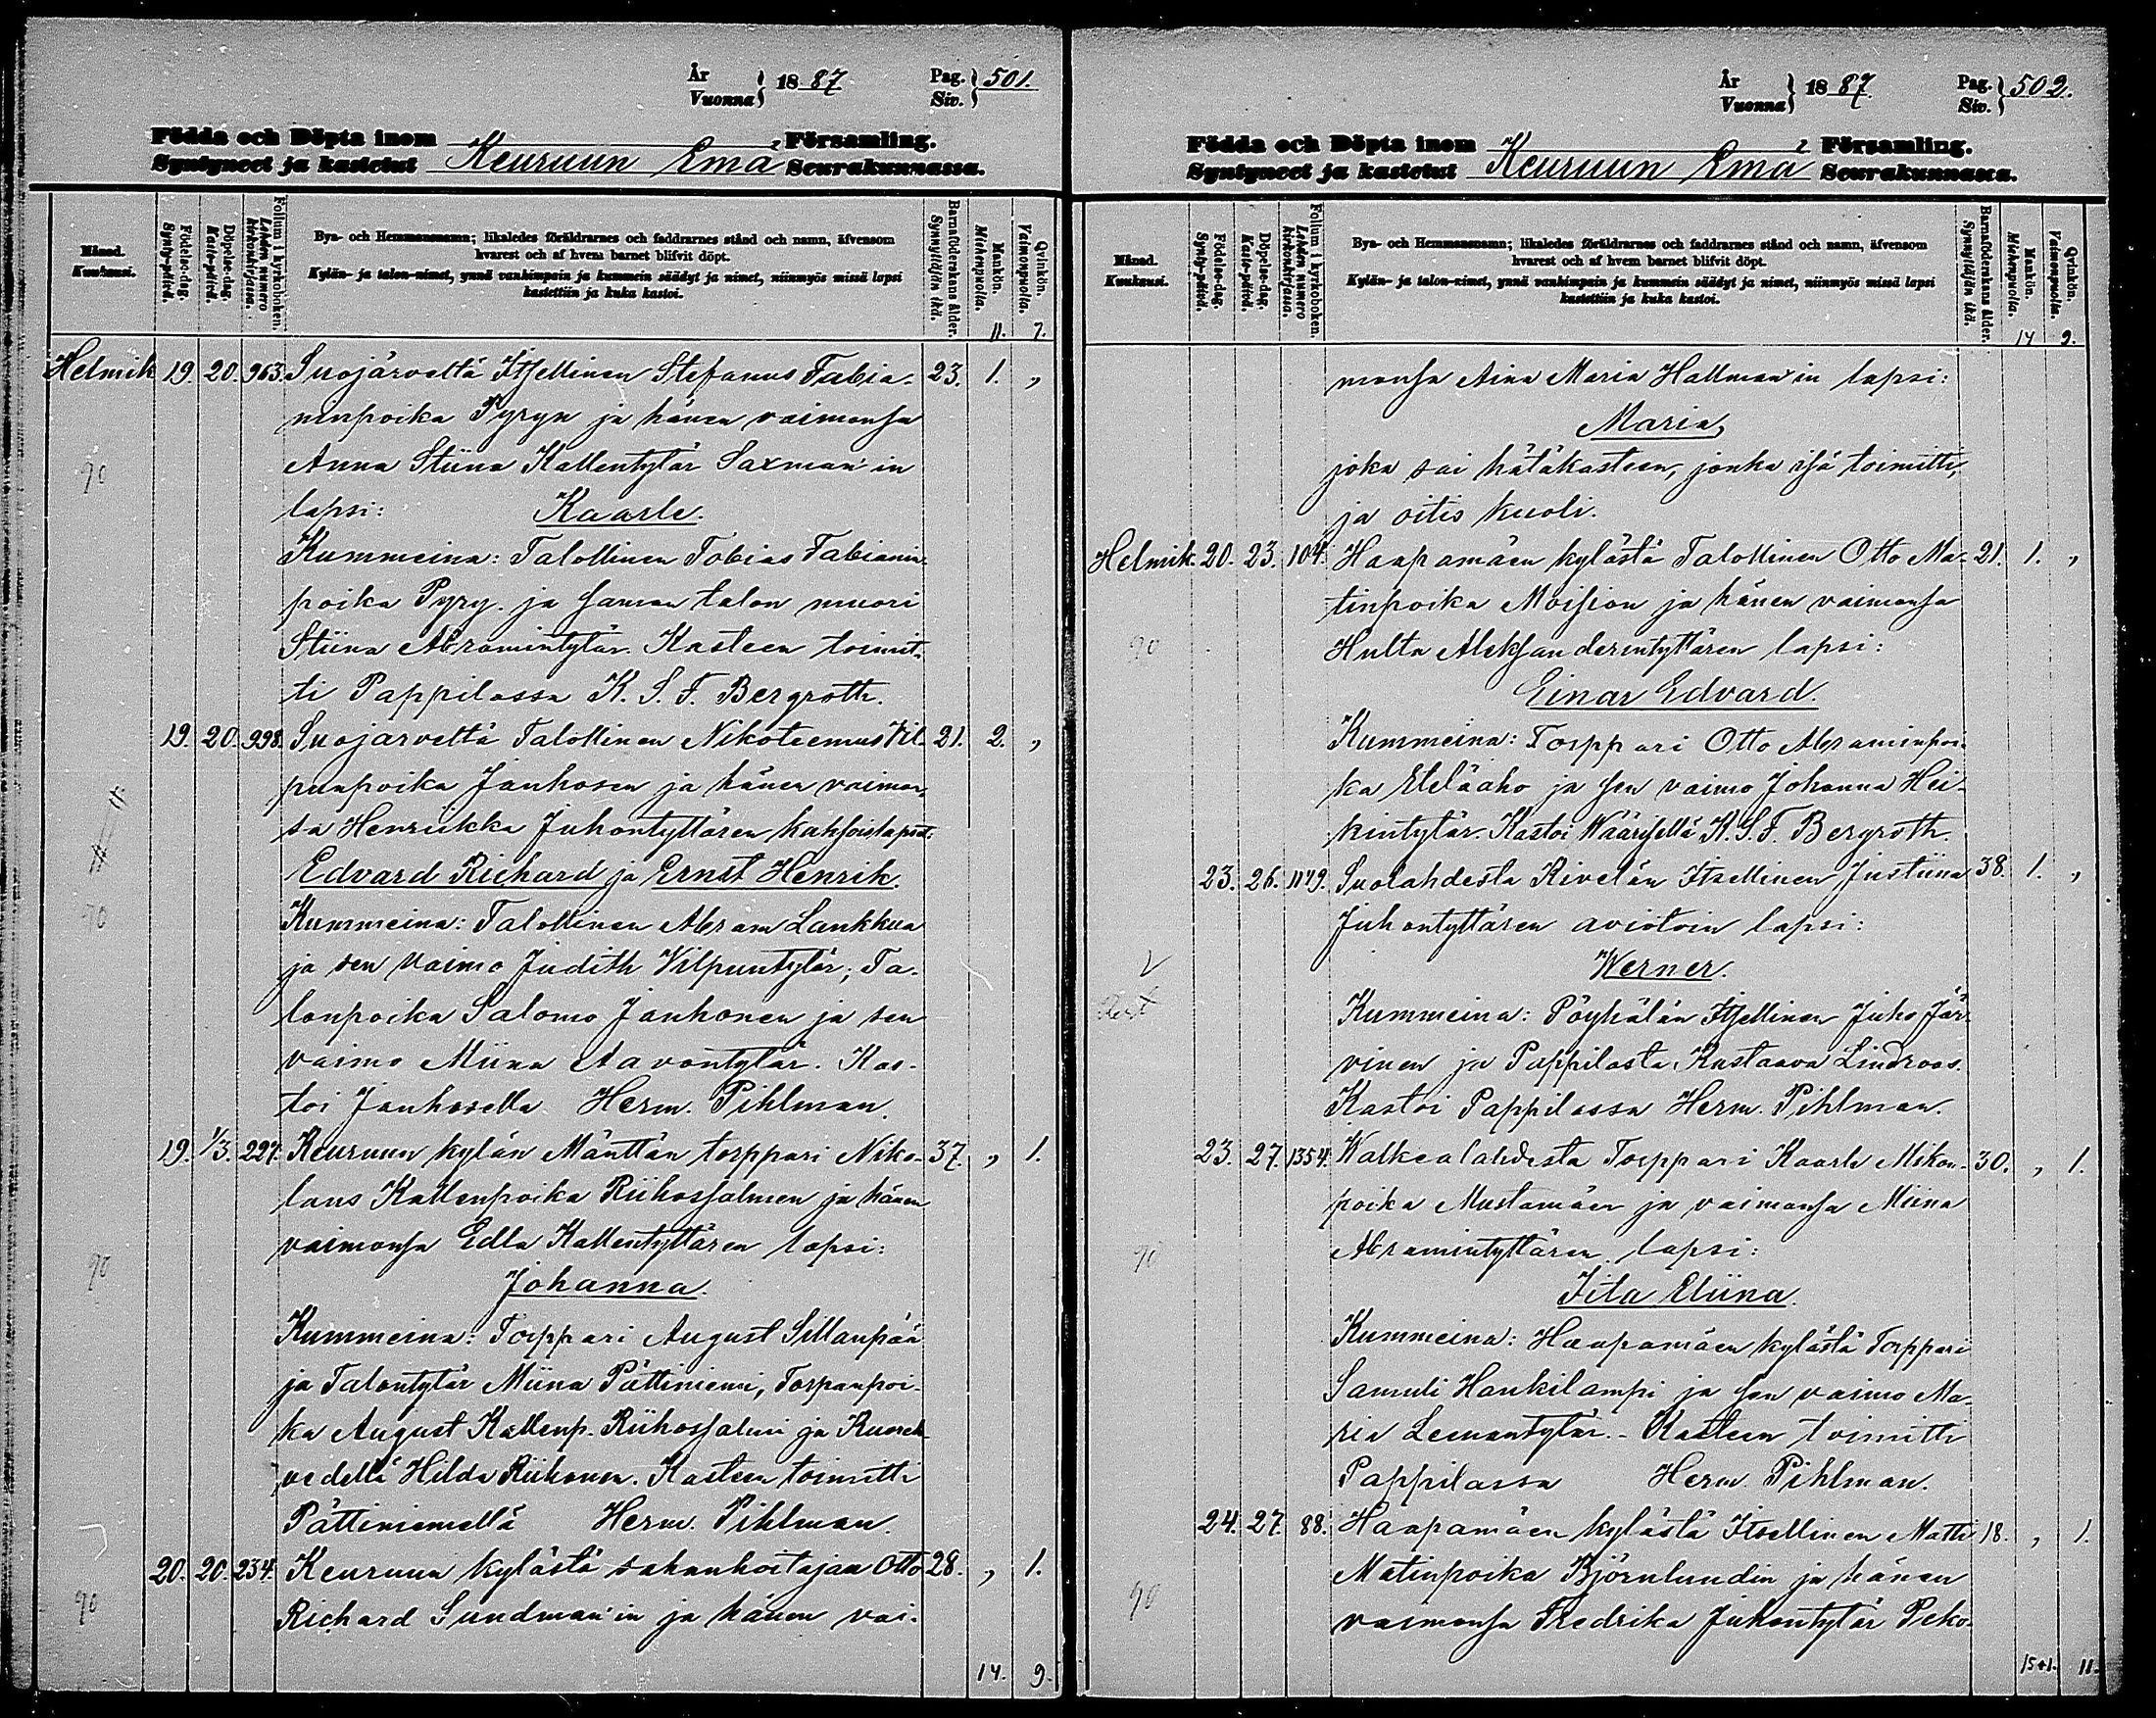 År
Vuonna } 1887 Pag.
Siv. } 501.
Födda och Döpta inom Församling.
Syntyneet ja kastetut Keuruun Emä Seurakunnassa.
Månad.
Kuukausi.
Födelse-dag.
Synty-päivä.
Döpelse-dag.
Kaste-päivä.
Folium i kyrkoboken.
Lehden numero
kirkonkirjassa.
Bya- och Hemmansnamn; likaledes föräldrarnes och faddrarnes stånd och namn, äfvensom
hvarest och af hvem barnet blifvit döpt.
Kylän- ja talon-nimet, ynnä vanhimpain ja kummein säädyt ja nimet, niinmyös missä lapsi
kastettiin ja kuka kastoi.
Barnaföderskans ålder.
Synnyttäjän ikä.
Mankön.
Miehenpuolia.
Qvinkön.
Vaimonpuolia.
11. 7.
Helmik 19. 20. 963. Suojärveltä Itsellinen Stefanus Fabia- 23. 1. ,
ninpoika Pyryn ja hänen vaimonsa
Anna Stiina Kallentytär Saxman'in
90
lapsi: Kaarle.
Kummeina: Talollinen Tobias Fabianin-
poika Pyry. ja saman talon muori
Stiina Abramintytär. Kasteen toimit-
ti Pappilassa K. S. F. Bergroth.
19. 20. 998. Suojärveltä Talollinen Nikoteemus Vil- 21. 2. ,
punpoika Janhosen ja hänen vaimon-
sa Henriikka Juhontyttären kaksoislapset:
Edvard Richard ja Ernst Henrik.
90 Kummeina: Talollinen Abram Lankkua
ja sen vaimo Judith Vilpuntytär; Ta-
lonpoika Salomo Janhonen ja sen
vaimo Miina Aavontytär. Kas-
toi Janhosella Herm. Pihlman.
19. 1/3. 227. Keuruun kylän Mänttän torppari Niko- 37. , 1.
laus Kallenpoika Riihossalmen ja hänen
vaimonsa Edla Kallentyttären lapsi:
90
Johanna.
Kummeina: Torppari August Sillanpää
ja Talontytär Miina Pättiniemi, Torpanpoi-
ka August Kallenp. Riihossalmi ja Kuoreh-
vedellä Hilda Riihonen. Kasteen toimitti
Pättiniemellä Herm. Pihlman.
20. 20. 234. Keuruun kylästä sahanhoitajan Otto 28. , 1.
90 Richard Sundman'in ja hänen vai-
14. 9.
År
Vuonna } 1887. Pag.
Siv. } 502.
Födda och Döpta inom Församling.
Syntyneet ja kastetut Keuruun Emä Seurakunnassa.
Månad.
Kuukausi.
Födelse-dag.
Synty-päivä.
Döpelse-dag.
Kaste-päivä.
Folium i kyrkoboken.
Lehden numero
kirkonkirjassa.
Bya- och Hemmansnamn; likaledes föräldrarnes och faddrarnes stånd och namn, äfvensom
hvarest och af hvem barnet blifvit döpt.
Kylän- ja talon-nimet, ynnä vanhimpain ja kummein säädyt ja nimet, niinmyös missä lapsi
kastettiin ja kuka kastoi.
Barnaföderskans ålder.
Synnyttäjän ikä.
Mankön.
Miehenpuolia.
Qvinkön.
Vaimonpuolia.
14 9.
monsa Aina Maria Hallman'in lapsi:
Maria,
joka sai hätäkasteen, jonka isä toimitti,
ja oitis kuoli.
Helmik. 20. 23. 104. Haapamäen kylästä Talollinen Otto Ma- 21. 1. ,
tinpoika Moision ja hänen vaimonsa
90 Hulta Aleksanderintyttären lapsi:
Einar Edvard.
Kummeina: Torppari Otto Abraminpoi-
ka Eteläaho ja sen vaimo Johanna Hei-
kintytär. Kastoi Wäärisellä K. S. F. Bergroth.
23. 26. 1179. Suolahdesta Kivelän Itsellinen Justiina 38. 1. ,
Juhontyttären aviotoin lapsi:
Werner.
Kummeina: Pöyhälän Itsellinen Juho Jär-
vinen ja Pappilasta Kustaava Lindroos.
Kastoi Pappilassa Herm. Pihlman.
23. 27. 1354. Walkealahdesta Torppari Kaarle Mikon- 30. , 1.
poika Mustamäen ja vaimonsa Miina
90 Abramintyttären lapsi:
Iita Eliina.
Kummeina: Haapamäen kylästä Torppari
Samuli Hankilampi ja sen vaimo Ma-
ria Leenantytär. - Kasteen toimitti
Pappilassa Herm. Pihlman.
24. 27. 88. Haapamäen kylästä Itsellinen Matti 18. , 1.
Matinpoika Björnlundin ja hänen
90 vaimonsa Fredrika Juhontytär Peko-
15+1. 11.